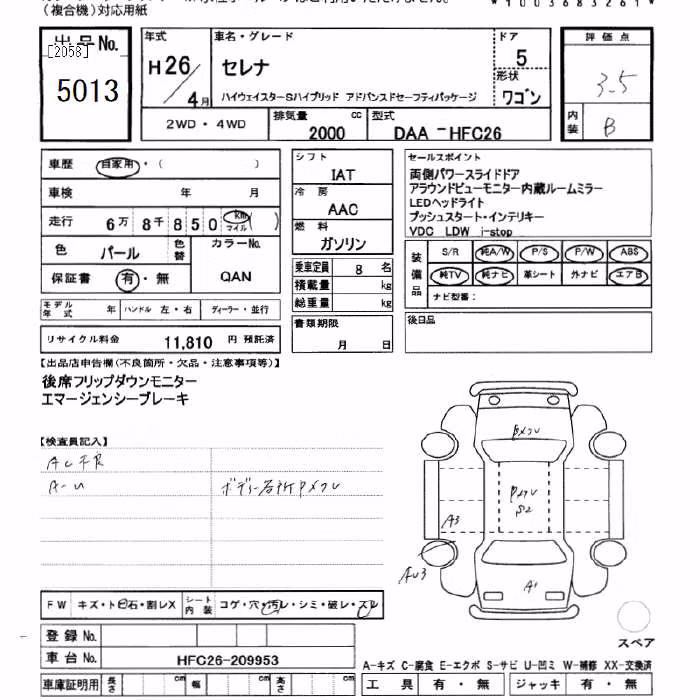 （複合機）対応用紙
*1003683261*
出品No.
[2058]
5013
年式
H26/4月
車名・グレード
セレナ
ハイウェイスターSハイブリッド アドバンスドセーフティパッケージ
ドア
5
形状
ワゴン
評価点
3.5
内装
B
2WD・4WD
排気量
2000 cc
型式
DAA－HFC26
車歴 自家用・（ ）
車検 年 月
走行 6万8千850 km マイル（ ）
色 パール 色替 カラーNo.
QAN
保証書 有・無
モデル年式 年 ハンドル 左・右 ディーラー・並行
リサイクル料金 11,810 円 預託済
シフト
IAT
冷房
AAC
燃料
ガソリン
乗車定員 8 名
積載量 kg
総重量 kg
書類期限
月 日
セールスポイント
両側パワースライドドア
アラウンドビューモニター内蔵ルームミラー
LEDヘッドライト
プッシュスタート・インテリキー
VDC LDW i-stop
装備品
S/R 純A/W P/S P/W ABS
純TV 純ナビ 革シート 外ナビ エアB
ナビ型番：
後日品
【出品店申告欄（不良箇所・欠品・注意事項等）】
後席フリップダウンモニター
エマージェンシーブレーキ
【検査員記入】
A-U
A3
AU3
A1
S2
FW キズ・トビ石・割レX シート内装 コゲ・穴・汚レ・シミ・破レ・スレ
登録No.
車台No. HFC26-209953
車庫証明用 長さ cm 幅 cm 高さ cm
スペア
A-キズ C-腐食 E-エクボ S-サビ U-凹ミ W-補修 XX-交換済
工具 有・無 ジャッキ 有・無